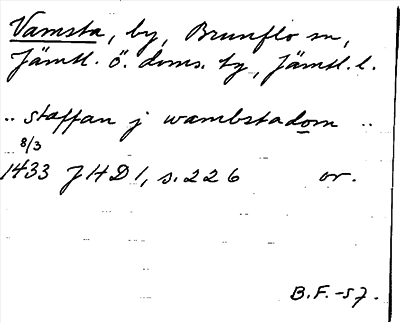 Vamsta, by, Brunflo sn,
Jämtl. ö. doms. tg, Jämtl. l.
.. staffan j wambstadom ..
8/3
1433 JHD 1, s. 226 or.
B.F. -57.